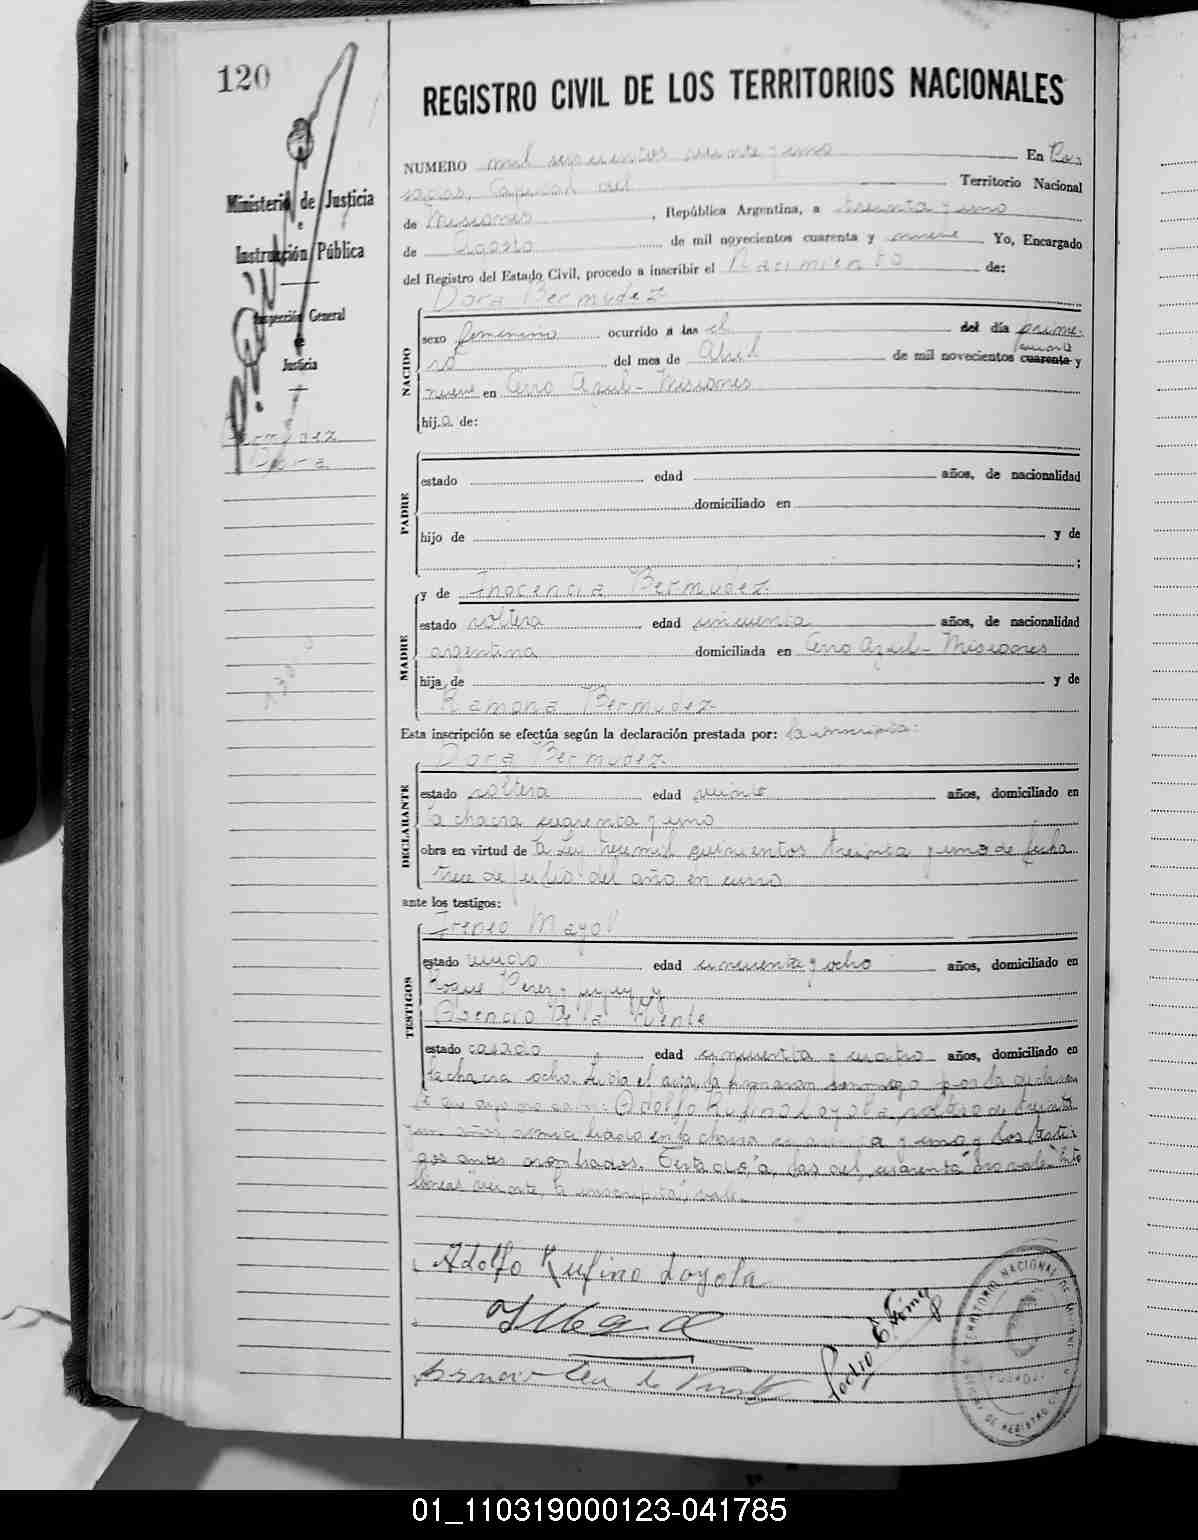 120
REGISTRO CIVIL DE LOS TERRITORIOS NACIONALES
Ministerio de Justicia
e
Instrucción Pública
Inspección General
de
Justicia
Bermudez
Dora
NUMERO mil y uno En Po
sadas, Capital del Territorio Nacional
de Misiones, República Argentina, a treinta y uno
de Agosto de mil novecientos cuarenta y nueve Yo, Encargado
del Registro del Estado Civil, procedo a inscribir el Nacimiento de:
Dora Bermudez
NACIDO
sexo femenino ocurrido a las el del día prime-
ro del mes de Abril de mil novecientos cuarenta y
nueve en Cerro Azul - Misiones
hij.a de:
PADRE
estado edad años, de nacionalidad
domiciliado en
hijo de y de
;
y de Inocencia Bermudez
MADRE
estado soltera edad cincuenta años, de nacionalidad
argentina domiciliada en Cerro Azul - Misiones
hija de y de
Ramona Bermudez
Esta inscripción se efectúa según la declaración prestada por: la inscripta:
Dora Bermudez
DECLARANTE
estado soltera edad veinte años, domiciliado en
la chacra cuarenta y uno
obra en virtud de la Ley trece mil quinientos treinta y uno de fecha
trece de julio del año en curso
ante los testigos:
TESTIGOS
Ireneo Mayol
estado viudo edad cincuenta y ocho años, domiciliado en
Roque Perez y
De la Fuente
estado casado edad cincuenta y cuatro años, domiciliado en
la chacra ocho. Leída el acta, la firmaron conmigo por la declaran
te que Adolfo Rufino Loyola, soltero de treinta
años domiciliado en la chacra y uno y los testi
gos antes nombrados. Testado: a, las del, cuarenta no vale. Ento
líneas la inscripta, vale.
Adolfo Rufino Loyola
Pedro E.
TERRITORIO NACIONAL DE MISIONES
POSADAS
01_110319000123-041785